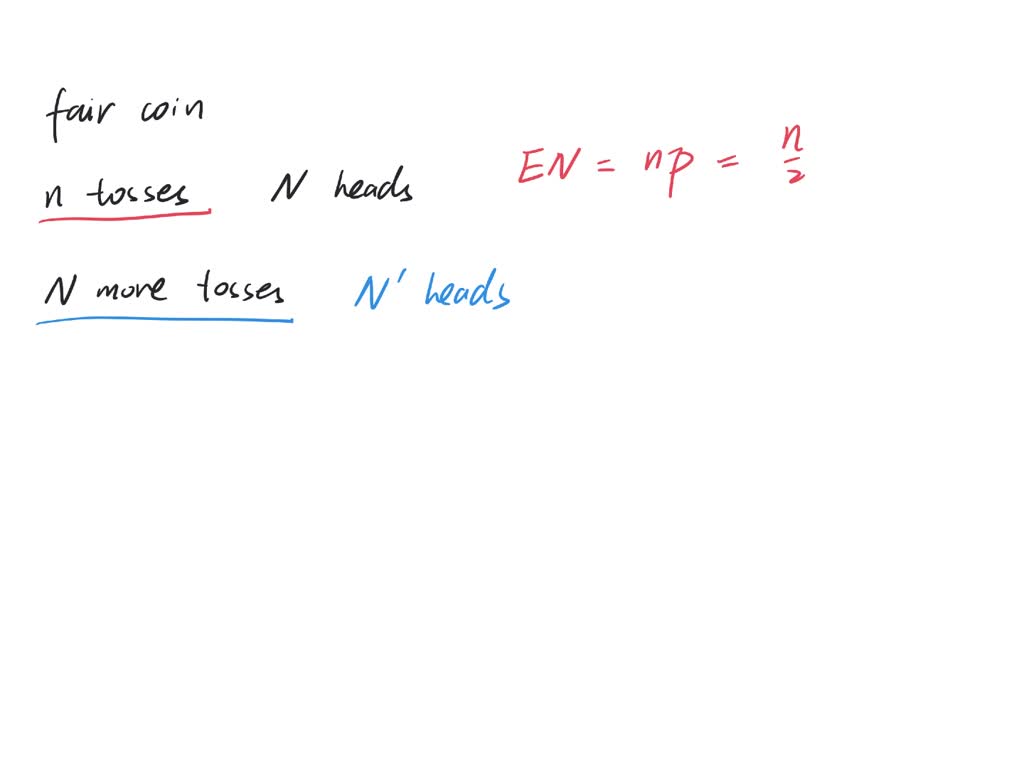 fair coin
n tosses N heads EN = np = n/2
N more tosses N' heads